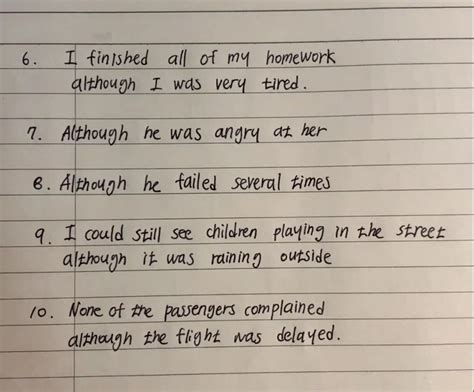 6. I finished all of my homework
although I was very tired.
7. Although he was angry at her
8. Although he failed several times
9. I could still see children playing in the street
although it was raining outside
10. None of the passengers complained
although the flight was delayed.